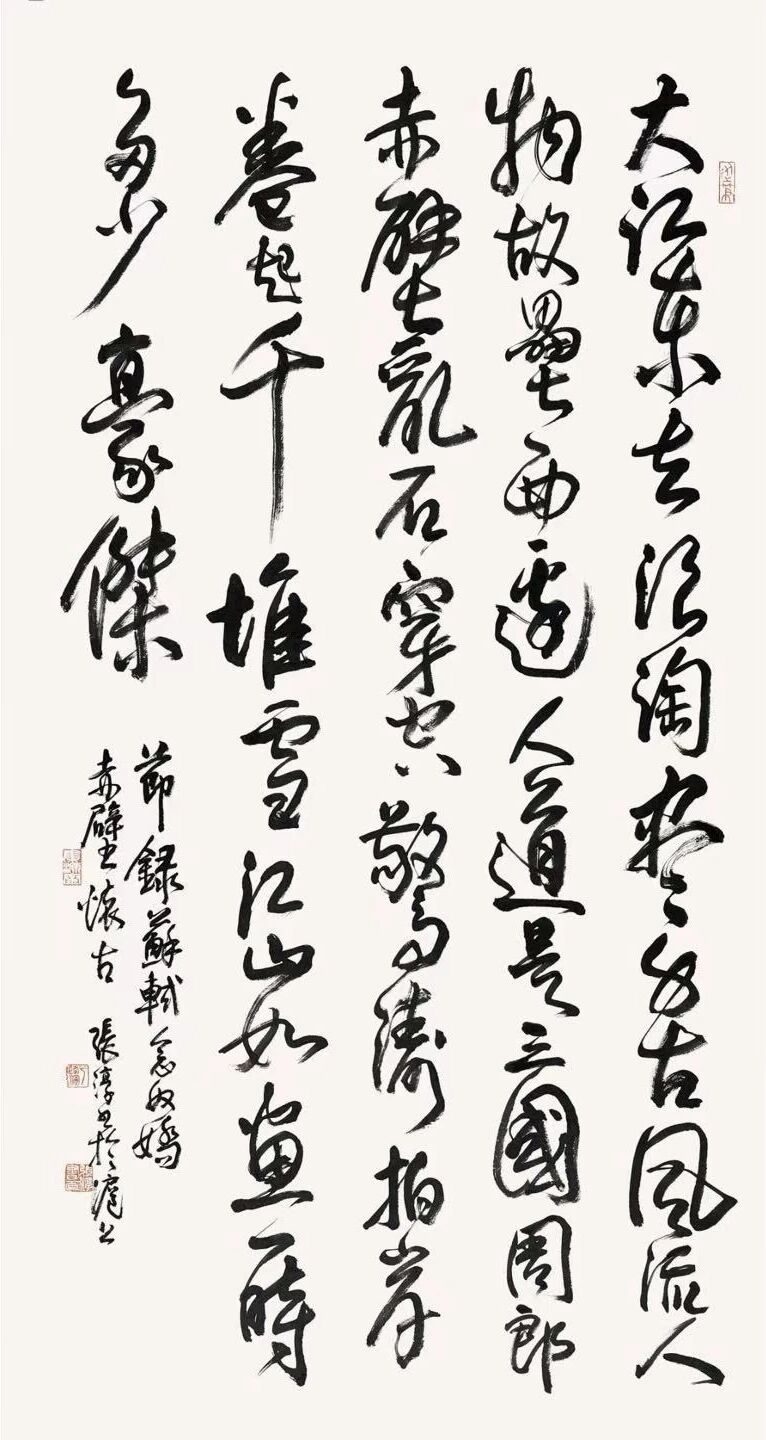 大江東去浪淘盡千古風流人
物故壘西邊人道是三國周郎
赤壁亂石穿空驚濤拍岸
卷起千堆雪江山如畫一時
多少豪傑
節錄蘇軾念奴嬌
赤壁懷古 張淳書於滬上